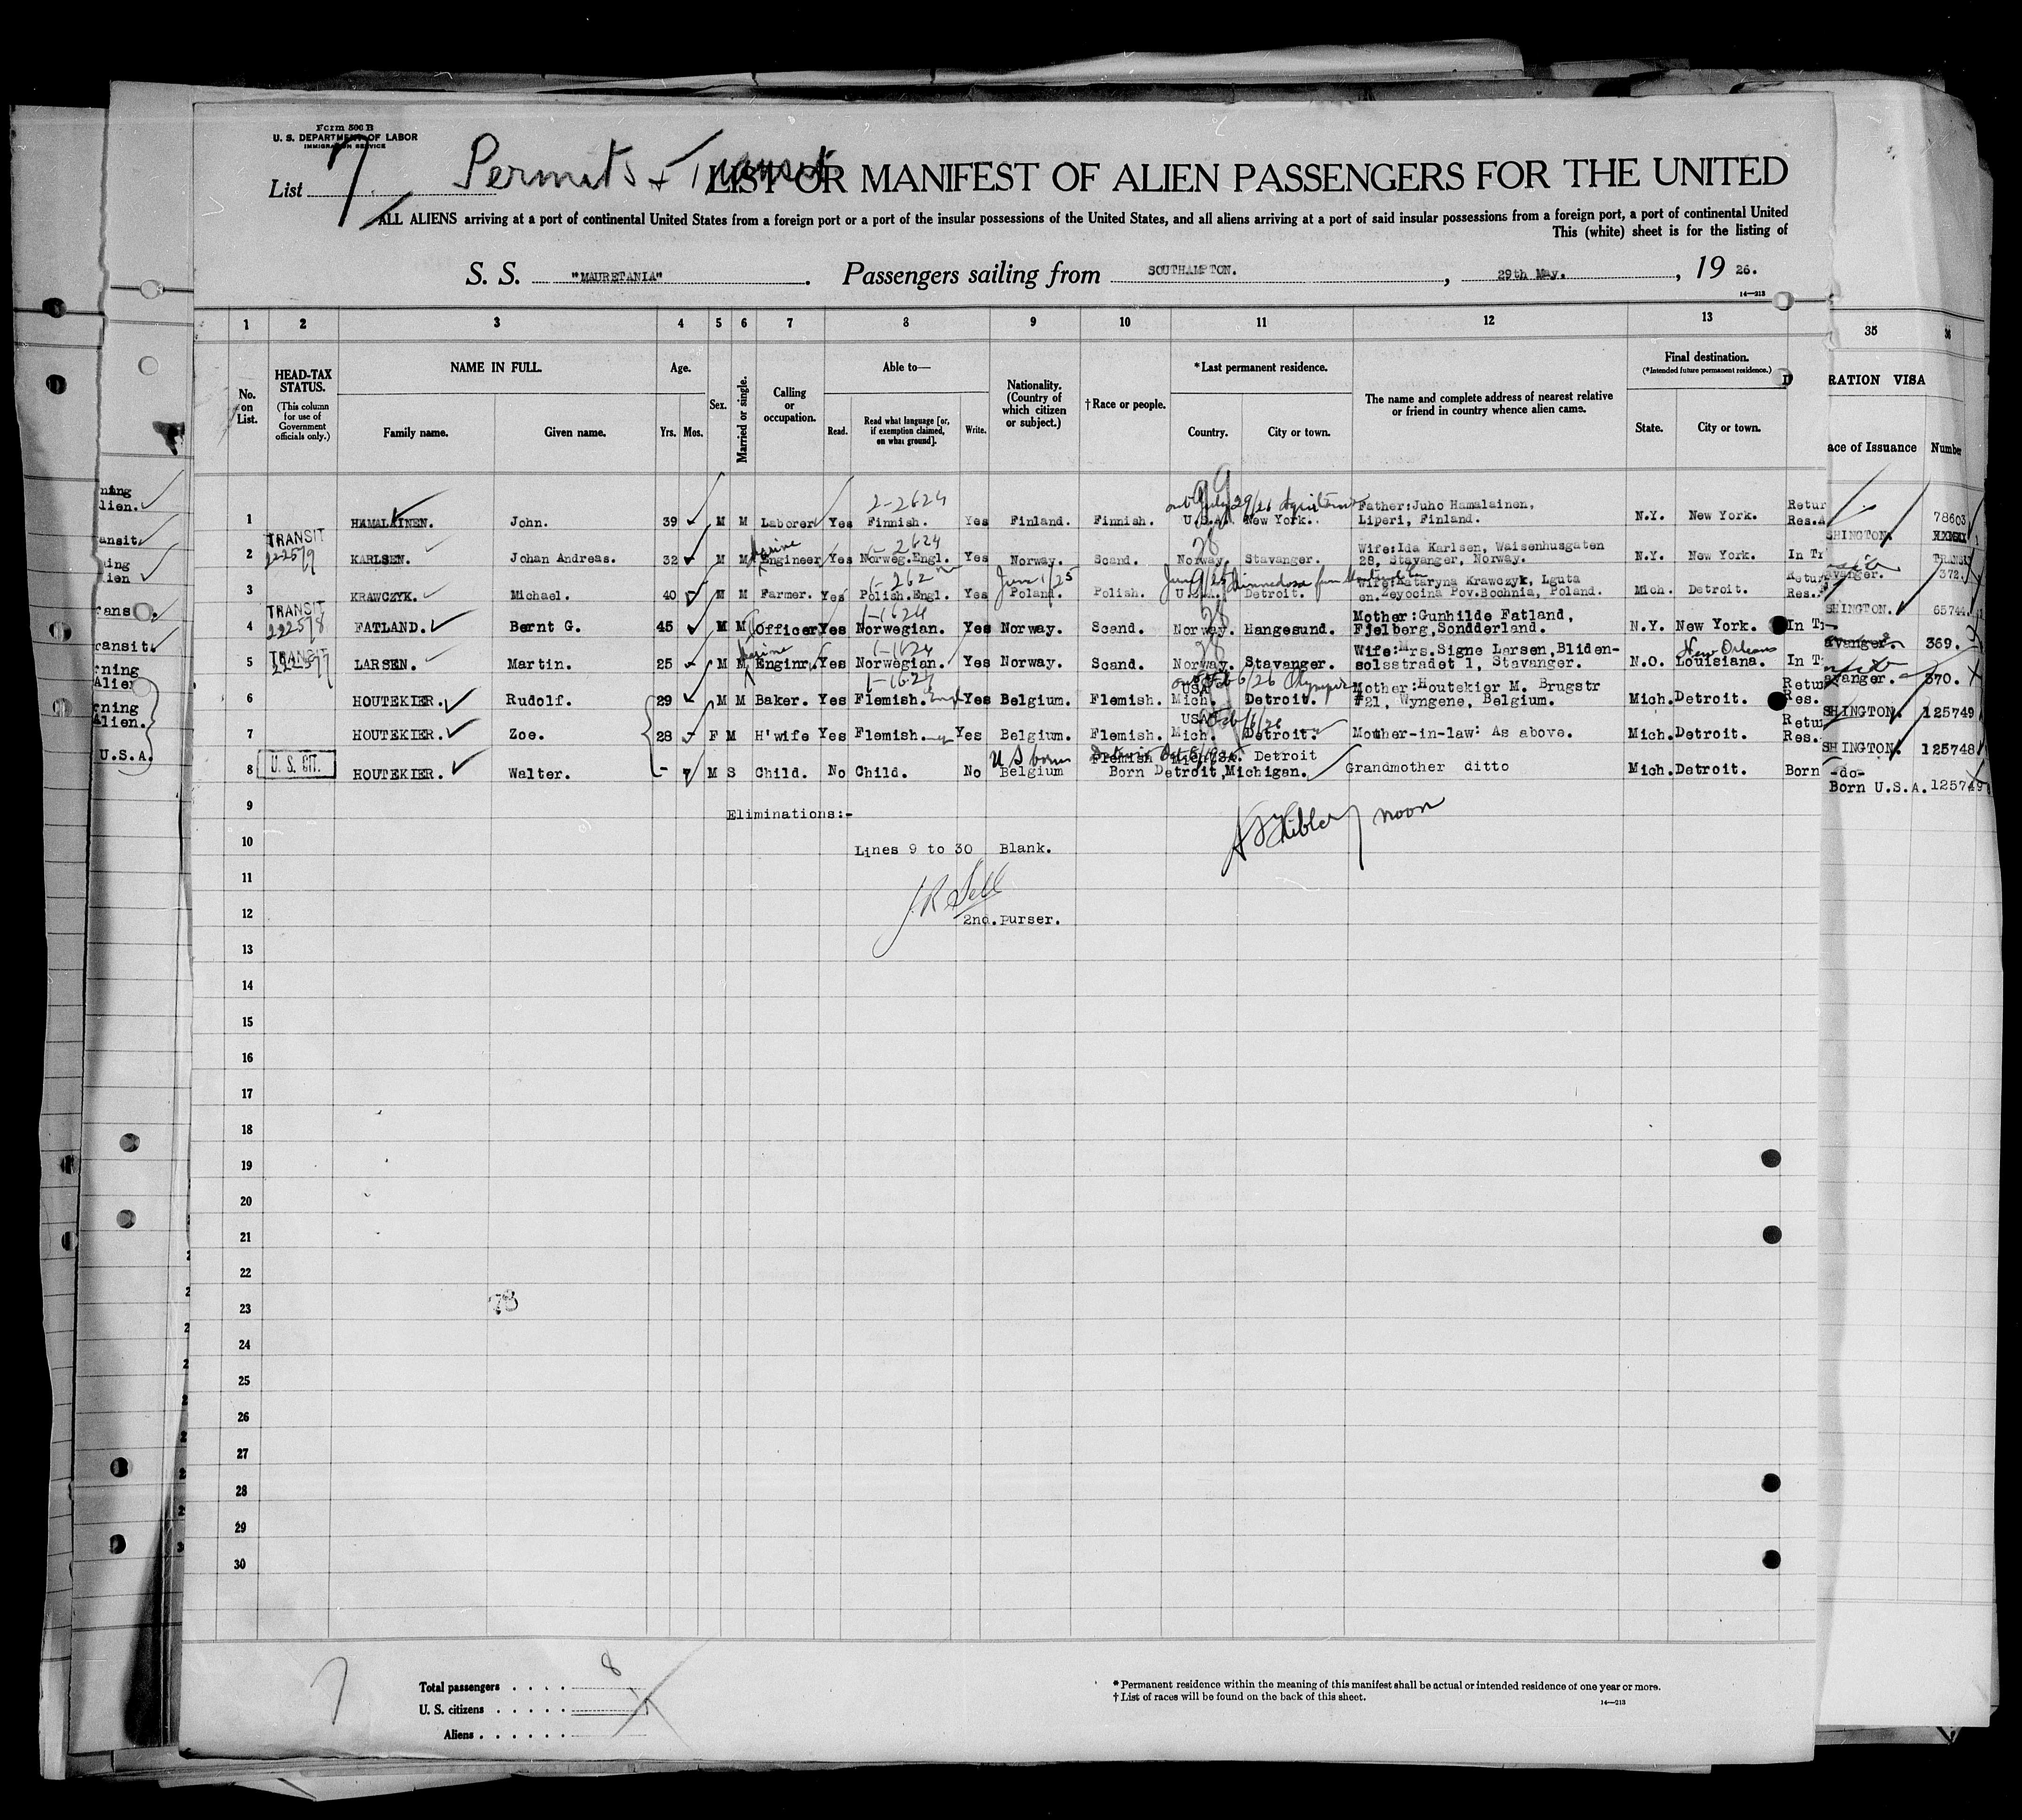 Form 500 B
U. S. DEPARTMENT OF LABOR
IMMIGRATION SERVICE
List 7
Permits + Transit
LIST OR MANIFEST OF ALIEN PASSENGERS FOR THE UNITED
ALL ALIENS arriving at a port of continental United States from a foreign port or a port of the insular possessions of the United States, and all aliens arriving at a port of said insular possessions from a foreign port, a port of continental United
This (white) sheet is for the listing of
S. S. "MAURETANIA". Passengers sailing from SOUTHAMPTON. , 29th May. , 19 26.
14—213
1 2 3 4 5 6 7 8 9 10 11 12 13 35 36
No. on List.
HEAD-TAX STATUS.
(This column for use of Government officials only.)
NAME IN FULL.
Family name. Given name.
Age.
Yrs. Mos.
Sex.
Married or single.
Calling or occupation.
Able to—
Read. Read what language [or, if exemption claimed, on what ground]. Write.
Nationality. (Country of which citizen or subject.)
†Race or people.
*Last permanent residence.
Country. City or town.
The name and complete address of nearest relative or friend in country whence alien came.
Final destination.
(*Intended future permanent residence.)
State. City or town.
RATION VISA
ace of Issuance Number
1 HAMALAINEN. John. 39 M M Laborer Yes Finnish. Yes Finland. Finnish. U.S.A. New York. Father:Juho Hamalainen, Liperi, Finland. N.Y. New York. Retur Res.A 78603
2 TRANSIT KARLSEN. Johan Andreas. 32 M M Marine Engineer Yes Norweg.Engl. Yes Norway. Scand. Norway. Stavanger. Wife:Ida Karlsen, Waisenhusgaten 28, Stavanger, Norway. N.Y. New York. In Tr
3 KRAWCZYK. Michael. 40 M M Farmer. Yes Polish.Engl. Yes Poland. Polish. U.S.A. Detroit. Wife:Kataryna Krawczyk, Lguta Pov.Bochnia, Poland. Mich. Detroit. Retur Res.
4 TRANSIT 222578 FATLAND. Bernt G. 45 M M Officer Yes Norwegian. Yes Norway. Scand. Norway. Hangesund. Mother:Gunhilde Fatland, Fjelberg,Sondderland. N.Y. New York. In T
5 TRANSIT LARSEN. Martin. 25 M M Marine Enginr. Yes Norwegian. Yes Norway. Scand. Norway. Stavanger. Wife:Mrs.Signe Larsen,Bliden-solsstradet 1, Stavanger. N.O. New Orleans Louisiana. In T
6 HOUTEKIER. Rudolf. 29 M M Baker. Yes Flemish. Yes Belgium. Flemish. USA Mich. Detroit. Mother:Houtekier M. Brugstr #21, Wyngene, Belgium. Mich. Detroit. Retur Res.
7 HOUTEKIER. Zoe. 28 F M H'wife Yes Flemish. Yes Belgium. Flemish. USA Mich. Detroit. Mother-in-law: As above. Mich. Detroit. Retur Res.
8 U. S. CIT. HOUTEKIER. Walter. - M S Child. No Child. No U S born Belgium Flemish Detroit Born Detroit,Michigan. Grandmother ditto Mich. Detroit. Born
SHINGTON.
TRANSIT
372.
SHINGTON. 65744.
369.
370.
SHINGTON. 125749
SHINGTON. 125748
-do-
Born U.S.A. 125749
9 Eliminations:-
10 Lines 9 to 30 Blank.
noon
11
J.R Sell
12 2nd.Purser.
13
14
15
16
17
18
19
20
21
22
23 78
24
25
26
27
28
29
30
7
Total passengers . . . . 8
U. S. citizens . . . . .
Aliens . . . . .
*Permanent residence within the meaning of this manifest shall be actual or intended residence of one year or more.
†List of races will be found on the back of this sheet.
14—213
ning
lien.
ansit
ing
ien
ransit.
ransit.
rning
Alien
rning
Alien.
U.S.A.